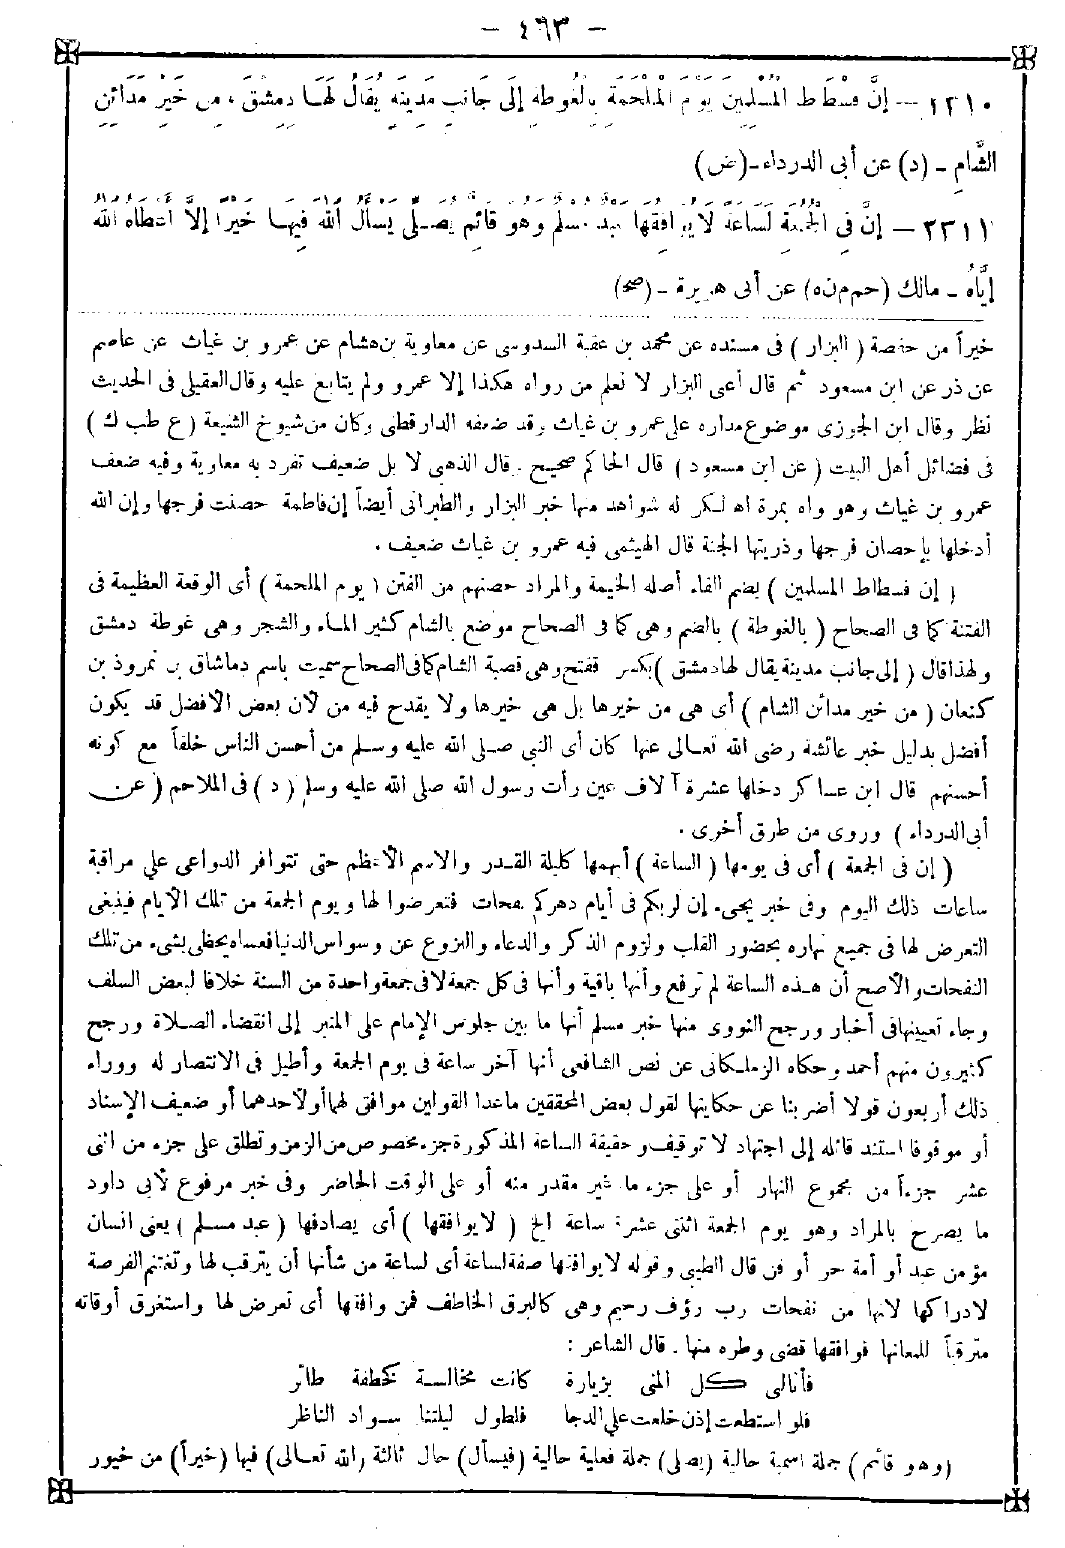 - ٤٦٣ -
٢٣١٠ — إِنَّ فُسْطَاطَ الْمُسْلِمِينَ يَوْمَ الْمَلْحَمَةِ بِالْغُوطَةِ إِلَى جَانِبِ مَدِينَةٍ يُقَالُ لَهَا دِمَشْقُ، مِن خَيْرِ مَدَائِنِ
الشَّامِ - (د) عن أبى الدرداء - (ض)
٢٣١١ — إِنَّ فِي الْجُمُعَةِ لَسَاعَةً لَا يُوَافِقُهَا عَبْدٌ مُسْلِمٌ وَهُوَ قَائِمٌ يُصَلِّي يَسْأَلُ اللهَ فِيهَا خَيْرًا إِلَّا أَعْطَاهُ اللهُ
إِيَّاهُ - مالك (حم م ن ه) عن أبى هريرة - (صح)
خيراً من حفصة (البزار) فى مسنده عن محمد بن عقبة السدوسى عن معاوية بن هشام عن عمرو بن غياث عن عاصم
عن ذر عن ابن مسعود ثم قال أعنى البزار لا نعلم من رواه هكذا إلا عمرو ولم يتابع عليه وقال العقيلى فى الحديث
نظر وقال ابن الجوزى موضوع مداره على عمرو بن غياث وقد ضعفه الدارقطنى وكان من شيوخ الشيعة (ع طب ك)
فى فضائل أهل البيت (عن ابن مسعود) قال الحاكم صحيح. قال الذهبى لا بل ضعيف تفرد به معاوية وفيه ضعف
عمرو بن غياث وهو واه بمرة اه لكن له شواهد منها خبر البزار والطبرانى أيضاً إن فاطمة حصنت فرجها وإن الله
أدخلها بإحصان فرجها وذريتها الجنة قال الهيثمى فيه عمرو بن غياث ضعيف.
(إن فسطاط المسلمين) بضم الفاء أصله الخيمة والمراد حصنهم من الفتن (يوم الملحمة) أى الوقعة العظيمة فى
الفتنة كما فى الصحاح (بالغوطة) بالضم وهى كما فى الصحاح موضع بالشام كثير الماء والشجر وهى غوطة دمشق
ولهذا قال (إلى جانب مدينة يقال لها دمشق) بكسر ففتح وهى قصبة الشام كما فى الصحاح سميت باسم دماشاق بن نمروذ بن
كنعان (من خير مدائن الشام) أى هى من خيرها بل هى خيرها ولا يقدح فيه من لأن بعض الأفضل قد يكون
أفضل بدليل خبر عائشة رضى الله تعالى عنها كان أى النبى صلى الله عليه وسلم من أحسن الناس خلقاً مع كونه
أحسنهم قال ابن عساكر دخلها عشرة آلاف عين رأت رسول الله صلى الله عليه وسلم (د) فى الملاحم (عن
أبى الدرداء) وروى من طرق أخرى.
(إن فى الجمعة) أى فى يومها (الساعة) أبهمها كليلة القدر والاسم الأعظم حتى تتوافر الدواعى على مراقبة
ساعات ذلك اليوم وفى خبر يجىء إن لربكم فى أيام دهركم نفحات فتعرضوا لها ويوم الجمعة من تلك الأيام فينبغى
التعرض لها فى جميع نهاره بحضور القلب ولزوم الذكر والدعاء والنزوع عن وسواس الدنيا فعساه يحظى بشىء من تلك
النفحات والأصح أن هذه الساعة لم ترفع وأنها باقية وأنها فى كل جمعة لا فى جمعة واحدة من السنة خلافا لبعض السلف
وجاء تعيينها فى أخبار ورجح النووى منها خبر مسلم أنها ما بين جلوس الإمام على المنبر إلى انقضاء الصلاة ورجح
كثيرون منهم أحمد وحكاه الزملكانى عن نص الشافعى أنها آخر ساعة فى يوم الجمعة وأطيل فى الانتصار له ووراء
ذلك أربعون قولا أضربنا عن حكايتها لقول بعض المحققين ماعدا القولين موافق لهما أو لأحدهما أو ضعيف الإسناد
أو موقوفا استند قائله إلى اجتهاد لا توقيف وحقيقة الساعة المذكورة جزء مخصوص من الزمن وتطلق على جزء من اثنى
عشر جزءاً من مجموع النهار أو على جزء ما غير مقدر منه أو على الوقت الحاضر وفى خبر مرفوع لأبى داود
ما يصرح بالمراد وهو يوم الجمعة اثنتى عشرة ساعة الخ (لا يوافقها) أى يصادفها (عبد مسلم) يعنى انسان
مؤمن عبد أو أمة حر أو قن قال الطيبى وقوله لا يوافقها صفة لساعة أى لساعة من شأنها أن يترقب لها وتغتنم الفرصة
لادراكها لأنها من نفحات رب رؤف رحيم وهى كالبرق الخاطف فمن وافقها أى تعرض لها واستغرق أوقاته
مترقباً للمعانها فوافقها قضى وطره منها. قال الشاعر :
فأنالى كل المنى بزيارة كانت مخالسة كخطفة طائر
فلو استطعت إذن خلعت على الدجا فلطول ليلتنا سواد الناظر
(وهو قائم) جملة اسمية حالية (يصلى) جملة فعلية حالية (فيسأل) حال ثالثة (الله تعالى) فيها (خيراً) من خيور